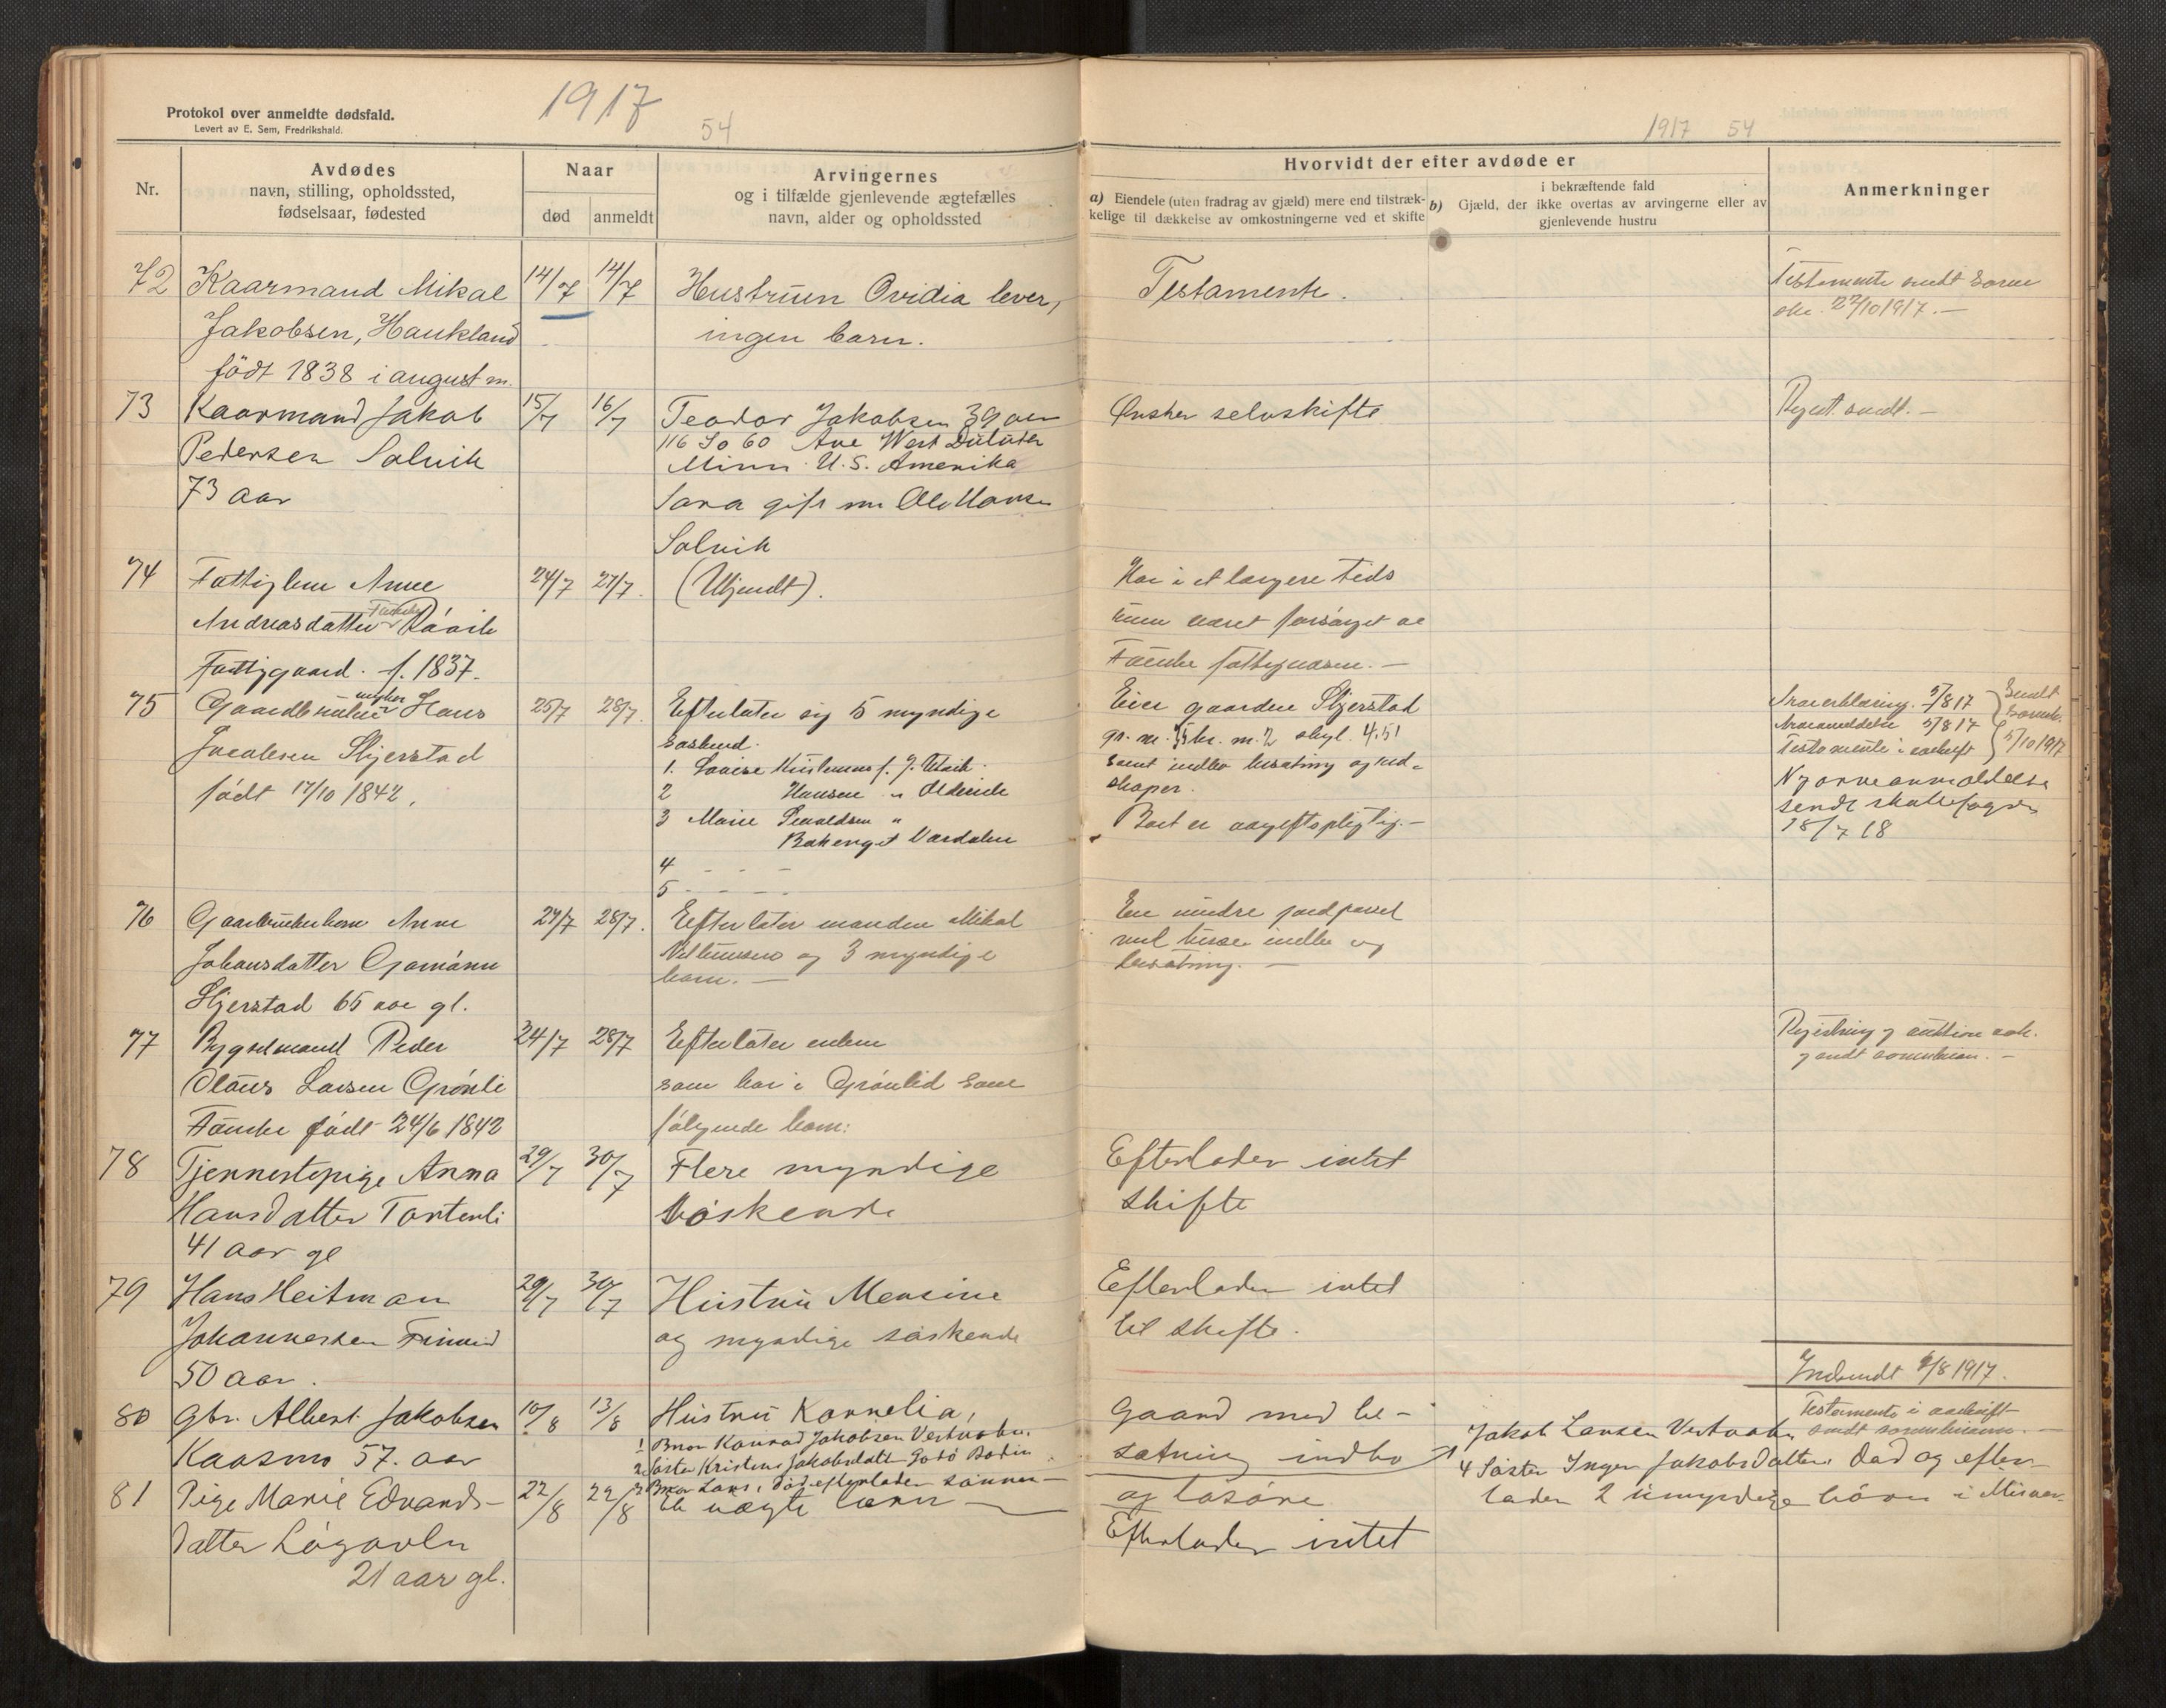 Protokol over anmeldte dødsfald.
Levert av E. Sem, Fredrikshald.
1917
54
Nr.
Avdødes
navn, stilling, opholdssted,
fødselsaar, fødested
Naar
død
anmeldt
Arvingernes
og i tilfælde gjenlevende ægtefælles
navn, alder og opholdssted
72
Kaarmand Mikal
Jakobsen, Haukland
født 1838 i august m.
14/7
14/7
Hustruen Ovidia lever,
ingen barn.
73
Kaarmand Jakob
Pedersen Solvik
73 aar
15/7
16/7
Teodor Jakobsen 39 aar
116 So 60 Ave West Duluth
Minn. U.S. Amerika
Sara gift m Ole Hansen
Solvik
74
Fattiglem Anne
Andreasdatter Røvik
Fattiggaard. f. 1837.
24/7
27/7.
(Ukjendt).
75
Gaardbruker ungkar Hans
Jacobsen Skjerstad
født 17/10 1842.
25/7
28/7.
Efterlater sig 5 myndige
søskend.
1. Lovise
2 Hansen
3 Marie
Bakenget Værdalen
4 - - -
5 - - - -
76
Gaardbrukerkone Anne
Johansdatter
Skjerstad 65 aar gl.
27/7
28/7.
Efterlater manden Mikal
og 3 myndige
barn. —
77
Bygselmand Peder
Olaus Larsen Grønli
Fauske født 24/6 1842
24/7
28/7
Efterlater enken
som bor i Grønlid samt
følgende barn:
78
Tjenestepige Anna
Hansdatter Tortenli
41 aar gl
29/7
30/7
Flere myndige
søskende
79
Hans Heitman
Johannessen Finneid
50 aar.
29/7
30/7
Hustru Mensine
og myndige søskende
80
Gbr. Albert Jakobsen
Kaasmo 57. aar
10/8
13/8
Hustru Kornelia,
1 Bror Konrad Jakobsen Vestvatn.
2 Søster Kristine Jakobsdatt Godø Bodin
3 Bror Lars, død efterlader sønner —
81
Pige Marie Edvards-
datter Løgavln
21 aar gl.
22/8
22/8
Et uægte barn —
1917 54
Hvorvidt der efter avdøde er
a) Eiendele (uten fradrag av gjæld) mere end tilstræk-
kelige til dækkelse av omkostningerne ved et skifte
b) i bekræftende fald
Gjæld, der ikke overtas av arvingerne eller av
gjenlevende hustru
Anmerkninger
Testamente.
Testamente sendt Sorne
skr. 22/10 1917. —
Ønsker selvskifte
Regist. sendt. —
Har i et længere tids
rum været forsørget av
Fauske fattigvæsen. —
Eier gaarden Skjerstad
gr. nr. br. nr. 2 skyl. 4.51
samt indbo besætning og red-
skaper.
Boet er avgiftspligtig. —
Arveerklæring. 5/8 17
Arveanmeldelse 5/8 17
Testamente i avskrift
Sendt
Sornsk.
5/10 1917
Ny arveanmeldelse
sendt skattefogden
18/7 18
En mindre jordparsel
med huse indbo og
besætning. —
Registrering og auktion avh.
og sendt sornskriv. —
Efterlader intet
skifte
Efterlader intet
til skifte.
Indsendt 4/8 1917.
Gaard med be-
sætning indbo
og løsøre
Jakob Larsen Vestvatn
4 Søster Inger Jakobsdatter død og efter-
lader 2 umyndige børn i Misvær.
Testamente i avskrift
sendt sornskriveren. —
Efterlader intet